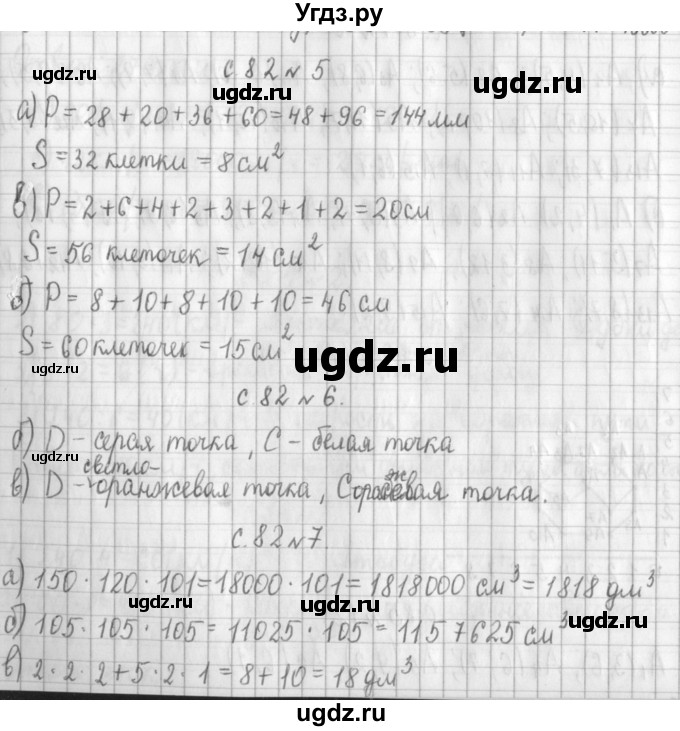 Угдз.ру
с 82 № 5
ugdz.ru ugdz.ru
а) P = 28 + 20 + 36 + 60 = 48 + 96 = 144 мм
S = 32 клетки = 8 см²
в) P = 2 + 6 + 4 + 2 + 3 + 2 + 1 + 2 = 20 см
ugdz.ru ugdz.ru
S = 56 клеточек = 14 см²
б) P = 8 + 10 + 8 + 10 + 10 = 46 см
S = 60 клеточек = 15 см²
ugdz.ru ugdz.ru
с 82 № 6.
ugdz.ru
б) D - серая точка, C - белая точка
ugdz.ru
в) D - светло-оранжевая точка, C оранжевая точка.
с. 82 № 7.
ugdz.ru
а) 150 · 120 · 101 = 18000 · 101 = 1818000 см³ = 1818 дм³
ugdz.ru ugdz.ru
б) 105 · 105 · 105 = 11025 · 105 = 1157625 см³
ugdz.ru
в) 2 · 2 · 2 + 5 · 2 · 1 = 8 + 10 = 18 дм³
ugdz.ru ugdz.ru
ugdz.ru